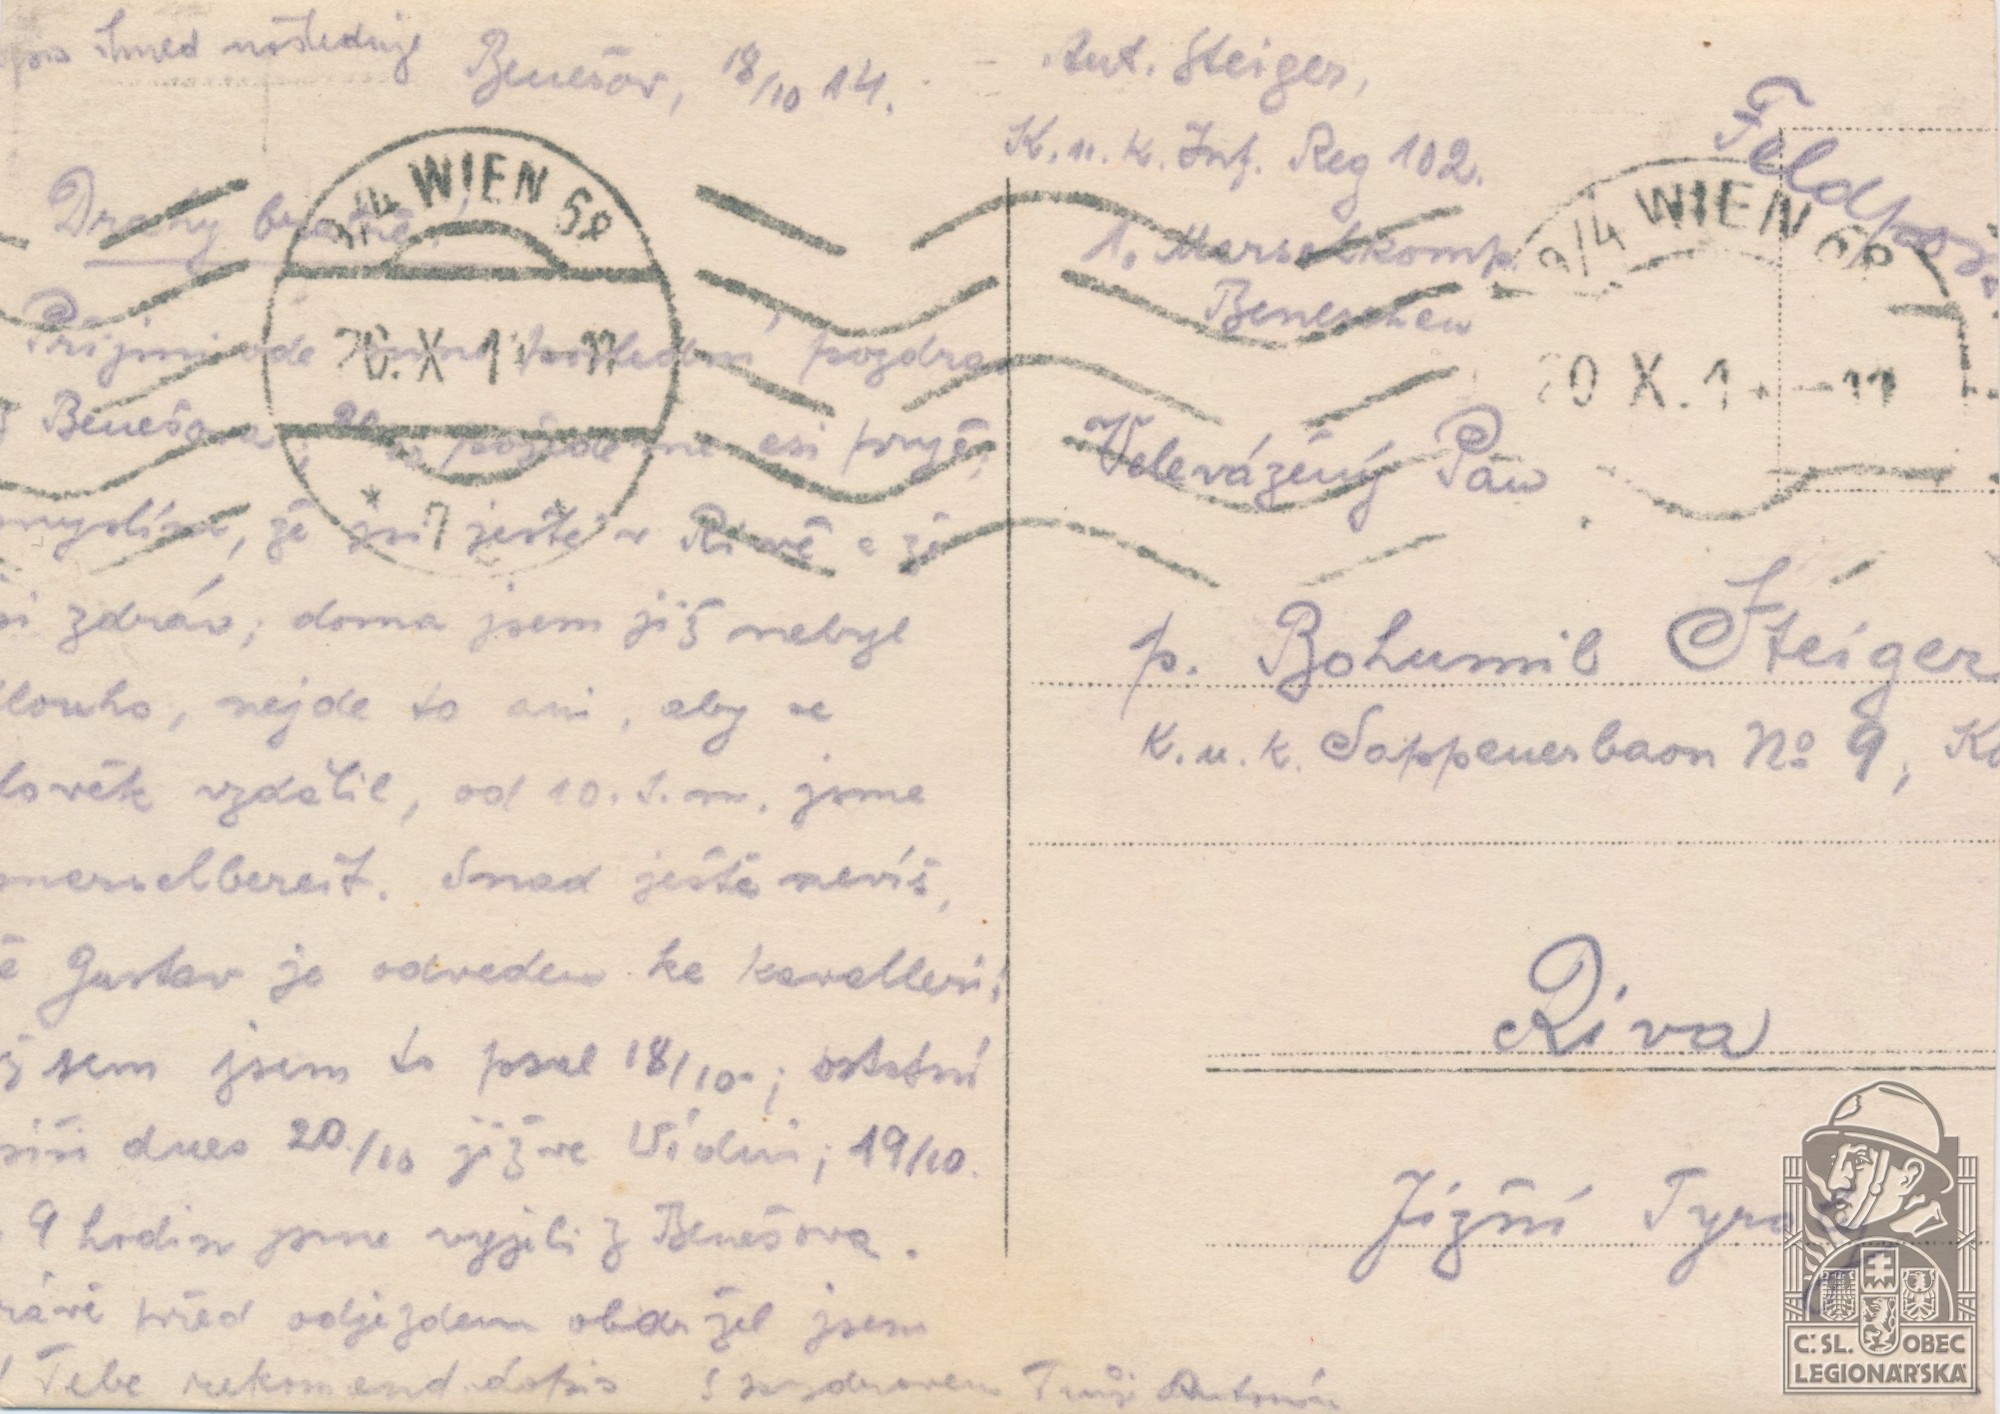 ihned následuje
Benešov, 18/10 14.
Drahý bratře!
Přijmi ode mne poslední pozdra
z Benešova; pojedeme asi pryč;
myslím, že jsi ještě v Rivě a že
si zdráv; doma jsem již nebyl
dlouho, nejde to ani, aby se
lověk vzdálil, od 10. t. m. jsme
marschbereit. Snad ještě nevíš,
že Gustav je odveden ke kavallerii;
ž sem jsem to psal 18/10.; ostatní
píši dnes 20./10 již ve Vídni; 19/10.
9 hodin jsme vyjeli z Benešova.
rávě před odjezdem obdržel jsem
d Tebe rekomend. dopis S pozdravem Tvůj Antonín
Ant. Steiger,
K. u. k. Inf. Reg 102.
1. Marschkomp.
Beneschau
Feldpost
Velevážený Pan
p. Bohumil Steiger
K. u. k. Sappeurbaon No 9, Ko
Riva
Jižní Tyroly
3/4 WIEN 68
20. X. 1 -11
* 7 *
9/4 WIEN 68
20 X. 1 -11
Č.SL. OBEC
LEGIONÁŘSKÁ